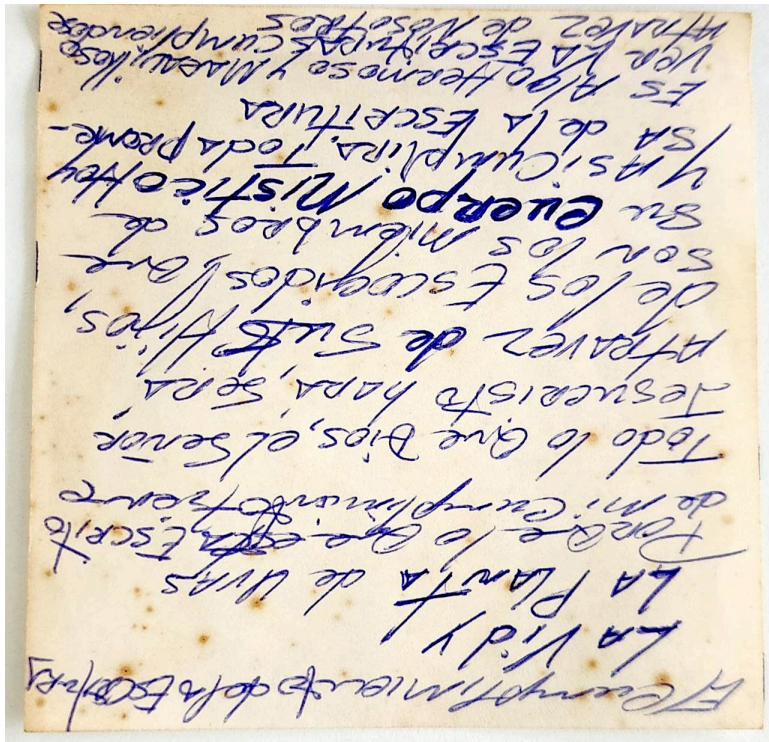 El Cumplimiento de la Escritura
LA Vid y
LA PLANTA de UVAS
PorQue lo Que esta Escrito
de mi Cumplimiento tiene
Todo lo Que Dios, el Señor
Jesucristo hara, Sera,
ATRAVEZ de Sus Hijos,
de los Escogidos, Que
son los Miembros de
Su Cuerpo Mistico Hoy
Y Asi Cumplira, Toda prome-
SA de la ESCRITURA
ES Algo Hermoso y Maravilloso
Ver LA ESCRITURAS Cumpliendose
ATRAVEZ de Nosotros